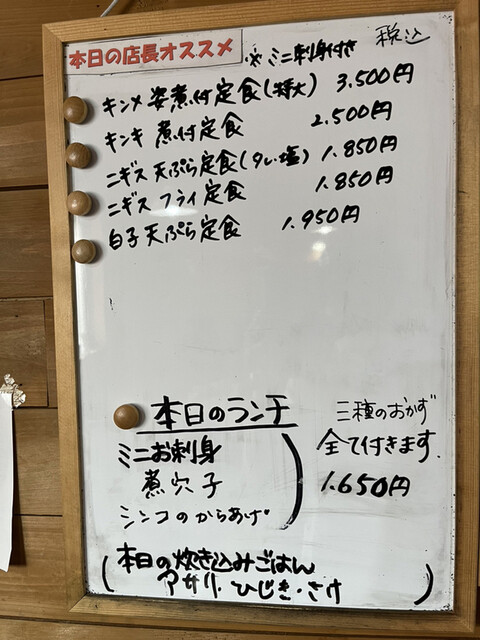 本日の店長オススメ ※ミニ刺身付き 税込
キンメ 姿煮付定食(特大) 3,500円
キンキ 煮付定食 2,500円
ニギス 天ぷら定食(タレ・塩) 1.850円
ニギス フライ定食 1.850円
白子天ぷら定食 1.950円
本日のランチ
ミニお刺身
煮穴子
シンコのからあげ
三種のおかず
全て付きます
1.650円
(本日の炊き込みごはん
アサリ・ひじき・さけ)